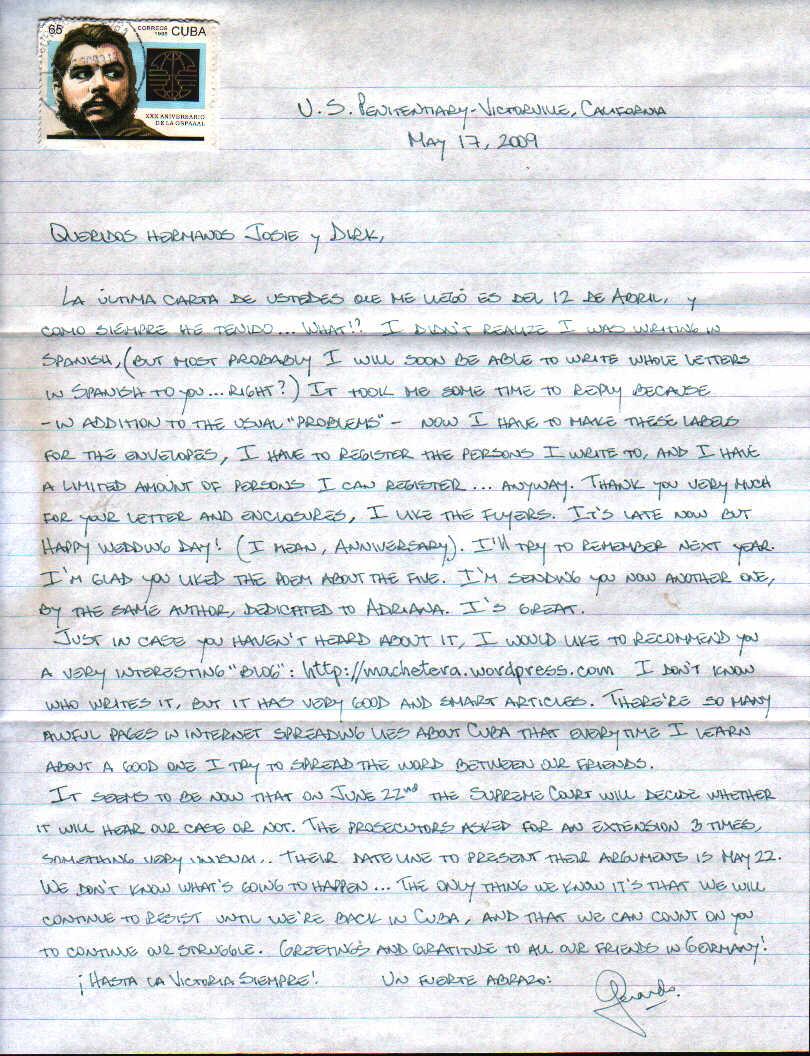 65
CORREOS
1996
CUBA
XXX ANIVERSARIO
DE LA OSPAAAL
U.S. PENITENTIARY - VICTORVILLE, CALIFORNIA
MAY 17, 2009
QUERIDOS HERMANOS JOSIE Y DIRK,
LA ÚLTIMA CARTA DE USTEDES QUE ME LLEGÓ ES DEL 12 DE ABRIL, Y
COMO SIEMPRE HE TENIDO... WHAT!? I DIDN'T REALIZE I WAS WRITING IN
SPANISH, (BUT MOST PROBABLY I WILL SOON BE ABLE TO WRITE WHOLE LETTERS
IN SPANISH TO YOU... RIGHT?) IT TOOK ME SOME TIME TO REPLY BECAUSE
- IN ADDITION TO THE USUAL "PROBLEMS" - NOW I HAVE TO MAKE THESE LABELS
FOR THE ENVELOPES, I HAVE TO REGISTER THE PERSONS I WRITE TO, AND I HAVE
A LIMITED AMOUNT OF PERSONS I CAN REGISTER... ANYWAY. THANK YOU VERY MUCH
FOR YOUR LETTER AND ENCLOSURES, I LIKE THE FLYERS. IT'S LATE NOW BUT
HAPPY WEDDING DAY! (I MEAN, ANNIVERSARY). I'll TRY TO REMEMBER NEXT YEAR.
I'M GLAD YOU LIKED THE POEM ABOUT THE FIVE. I'M SENDING YOU NOW ANOTHER ONE,
BY THE SAME AUTHOR, DEDICATED TO ADRIANA. I'S GREAT.
JUST IN CASE YOU HAVEN'T HEARD ABOUT IT, I WOULD LIKE TO RECOMMEND YOU
A VERY INTERESTING "BLOG": http://machetera.wordpress.com I DON'T KNOW
WHO WRITES IT, BUT IT HAS VERY GOOD AND SMART ARTICLES. THERE'RE SO MANY
AWFUL PAGES IN INTERNET SPREADING LIES ABOUT CUBA THAT EVERYTIME I LEARN
ABOUT A GOOD ONE I TRY TO SPREAD THE WORD BETWEEN OUR FRIENDS.
IT SEEMS TO BE NOW THAT ON JUNE 22nd THE SUPREME COURT WILL DECIDE WHETHER
IT WILL HEAR OUR CASE OR NOT. THE PROSECUTORS ASKED FOR AN EXTENSION 3 TIMES,
SOMETHING VERY UNUSUAL.. THEIR DATE LINE TO PRESENT THEIR ARGUMENTS IS MAY 22.
WE DON'T KNOW WHAT'S GOING TO HAPPEN... THE ONLY THING WE KNOW IT'S THAT WE WILL
CONTINUE TO RESIST UNTIL WE'RE BACK IN CUBA, AND THAT WE CAN COUNT ON YOU
TO CONTINUE OUR STRUGGLE. GREETINGS AND GRATITUDE TO ALL OUR FRIENDS IN GERMANY!
¡HASTA LA VICTORIA SIEMPRE! UN FUERTE ABRAZO:
Gerardo.